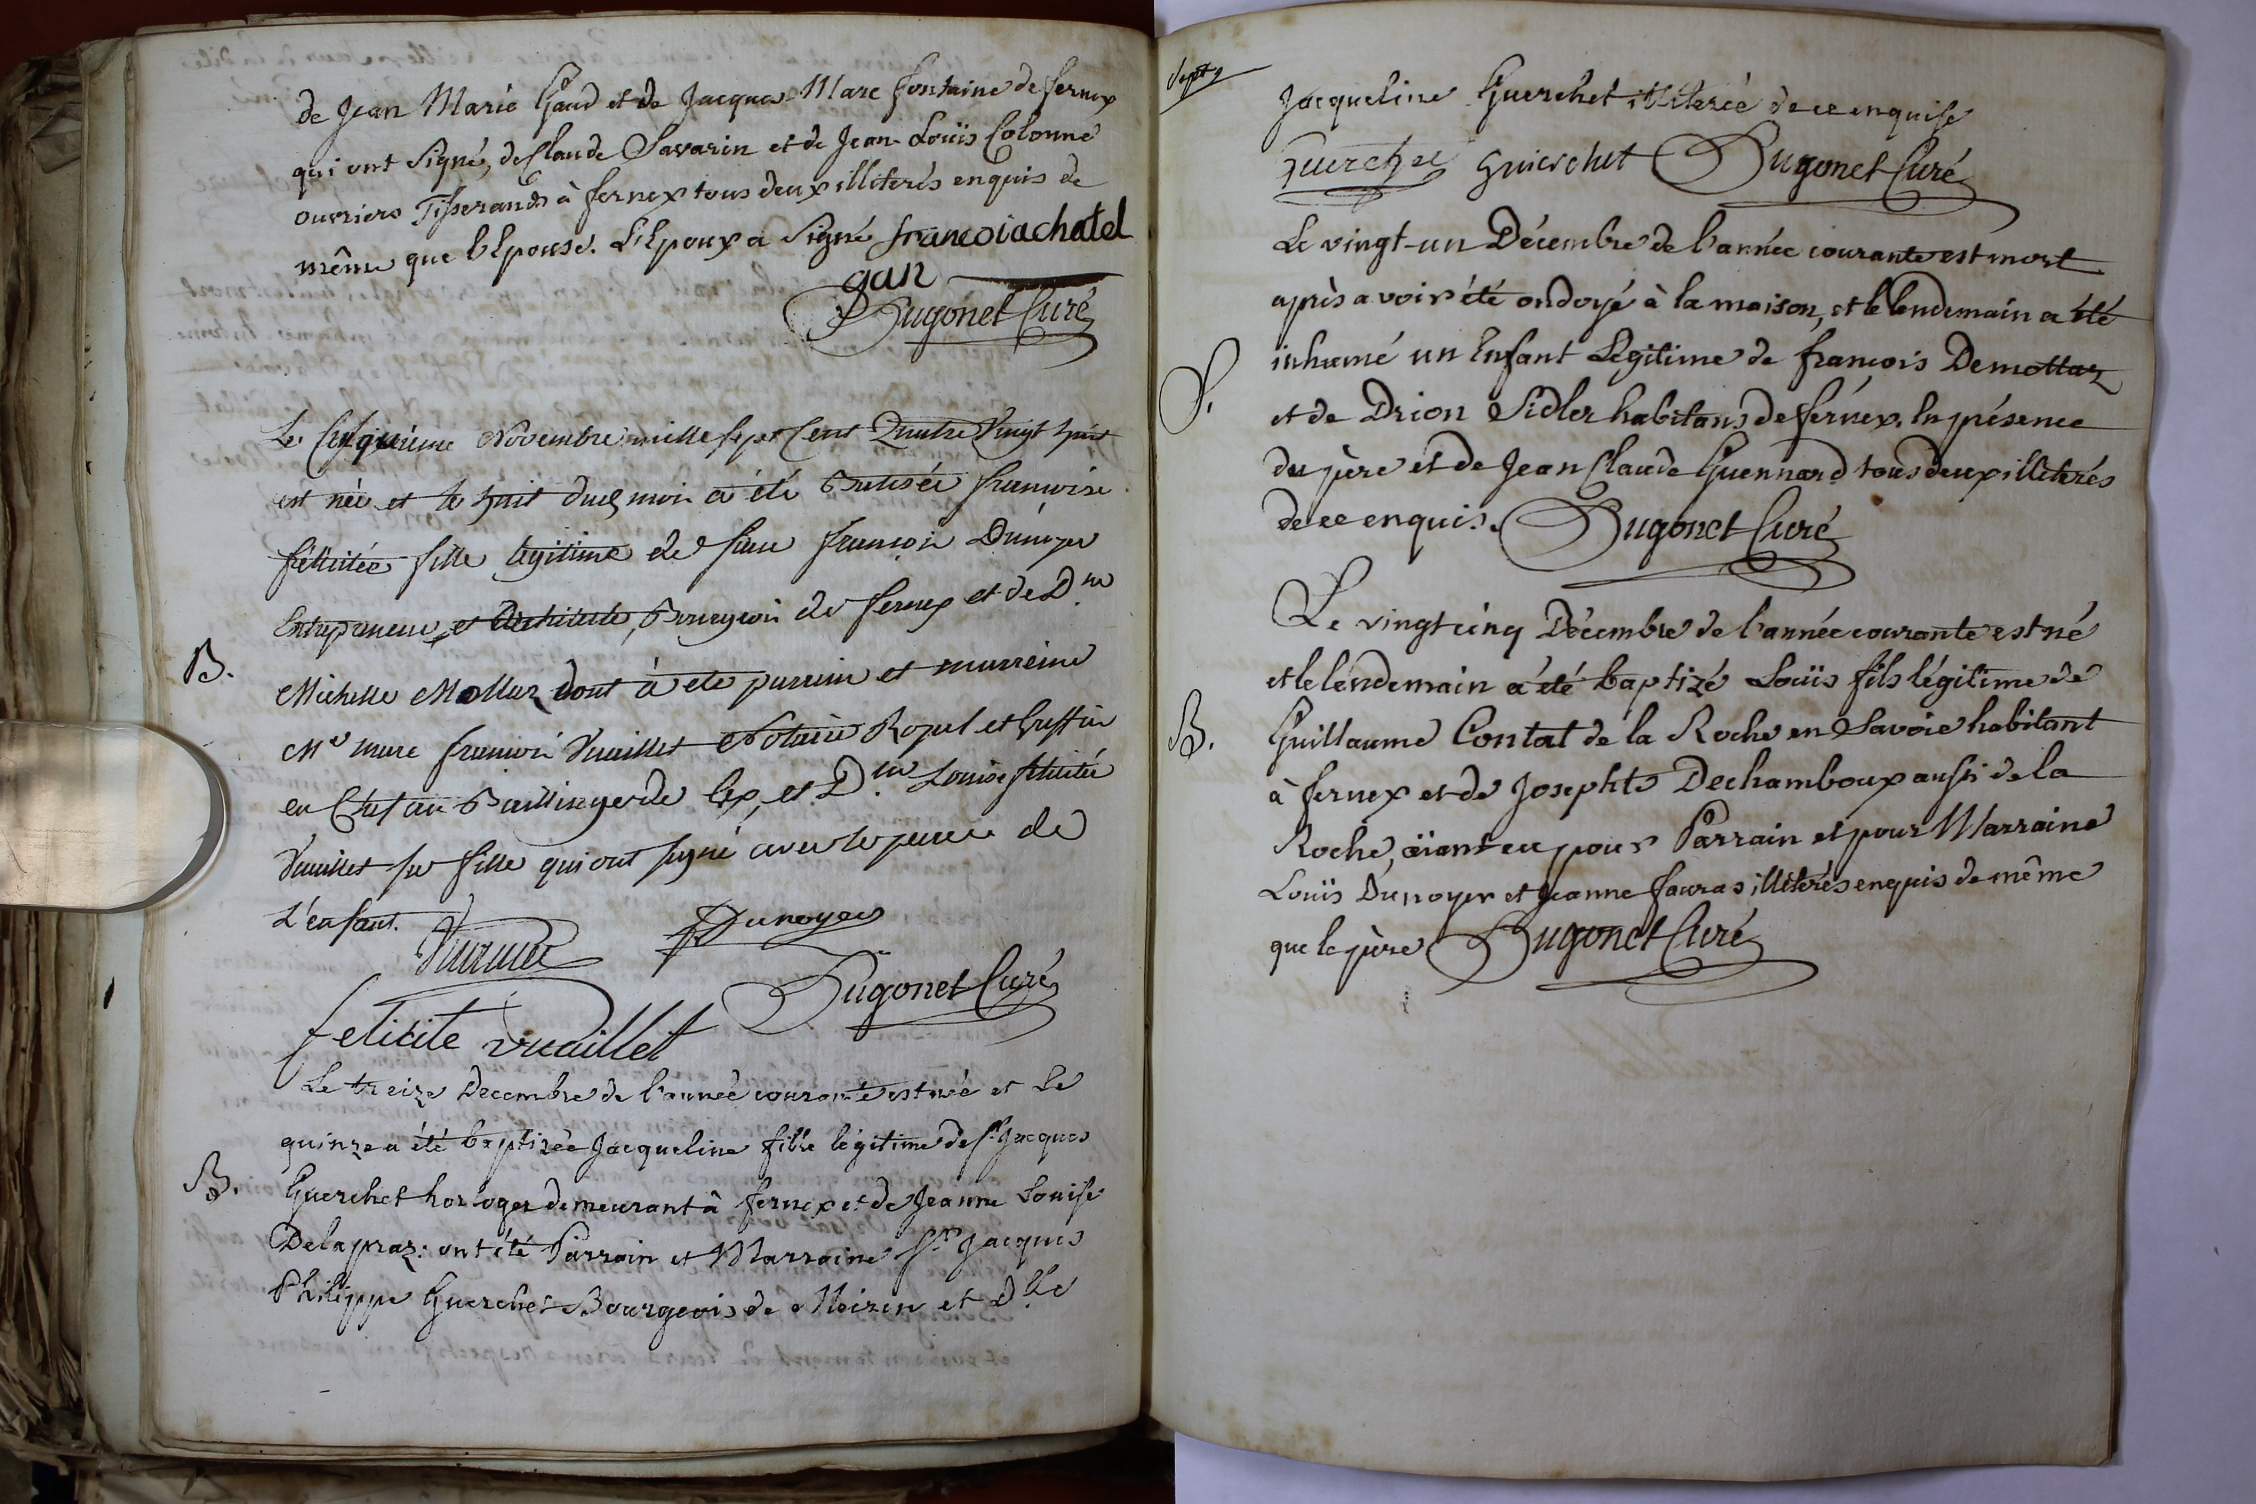 de Jean Marie Gaud et de Jacques Marc fontaine de fernex
qui ont Signé, de Claude Savarin et de Jean Loüis Colonne
ouvriers Tisserands à fernex tous deux illiterés enquis de
même que l'Epouse. L'Epoux a Signé francoiachatel
gan
Hugonet Curé
Le Cinquieme Novembre mille sept Cent Quatre Vingt huit
est née et le huit dud mois a été Batisée francoise
félicitée fille legitime de sieur francois Dunoyer
Entrepreneur et Architecte, Bourgeois de fernex et de Dme
B.
Michelle Mollaz dont à ete parrain et marreine
Me marc francois Vuaillet Notaire Royal et Greffier
en Chef au Bailliage de Gex, et Dlle Louise félicitée
Vuaillet sa fille qui ont signé avec le pere de
L'enfant.
Vuaillet
Dunoyer
Hugonet Curé
felicite vuaillet
Le treize Decembre de l'année courante est née et le
quinze a été baptizée Jacqueline fille légitime de sr Jacques
B.
Guerchet horloger demeurant à fernex et de Jeanne Louise
Delapraz: ont été Parrain et Marraine Sr Jacques
Philippe Guerchet Bourgeois de Moizen et Dlle
Sept 9
Jacqueline Guerchet illiterée de ce enquise
Guerchet Guierchet Hugonet Curé
Le vingt-un Décembre de l'année courante est mort
après avoir été ondoyé à la maison, et le lendemain a été
inhumé un Enfant Légitime de francois Demottaz
S.
et de Drion Sidler habitans de férnex. En présence
du père et de Jean Claude Guennard tous deux illiterés
de ce enquis. Hugonet Curé
Le vingt cinq Décembre de l'année courante est né
et le lendemain a été baptizé Loüis fils légitime de
B.
Guillaume Contat de la Roche en Savoie habitant
à fernex et de Josephte Dechamboux aussi de la
Roche, aïant eu pour Parrain et pour Marraine
Loüis Dunoyer et Jeanne fauras illiterés enquis de même
que le père Hugonet Curé